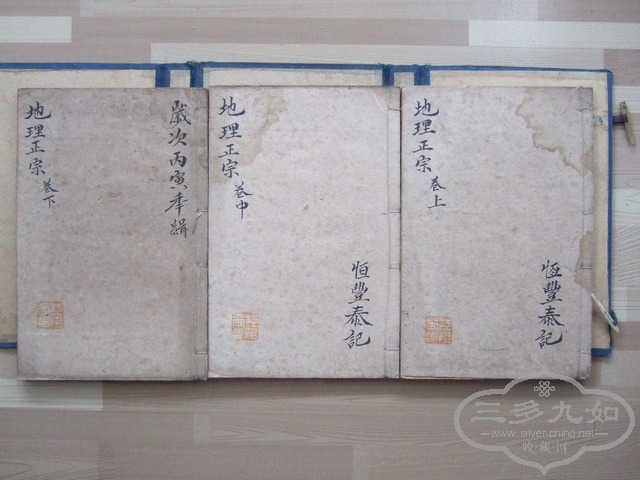 地理正宗 卷上
恆豐泰記
地理正宗 卷中
恒豐泰記
歲次丙寅年緝
地理正宗 卷下
三多九如
www.silver.china.net
收·藏·网